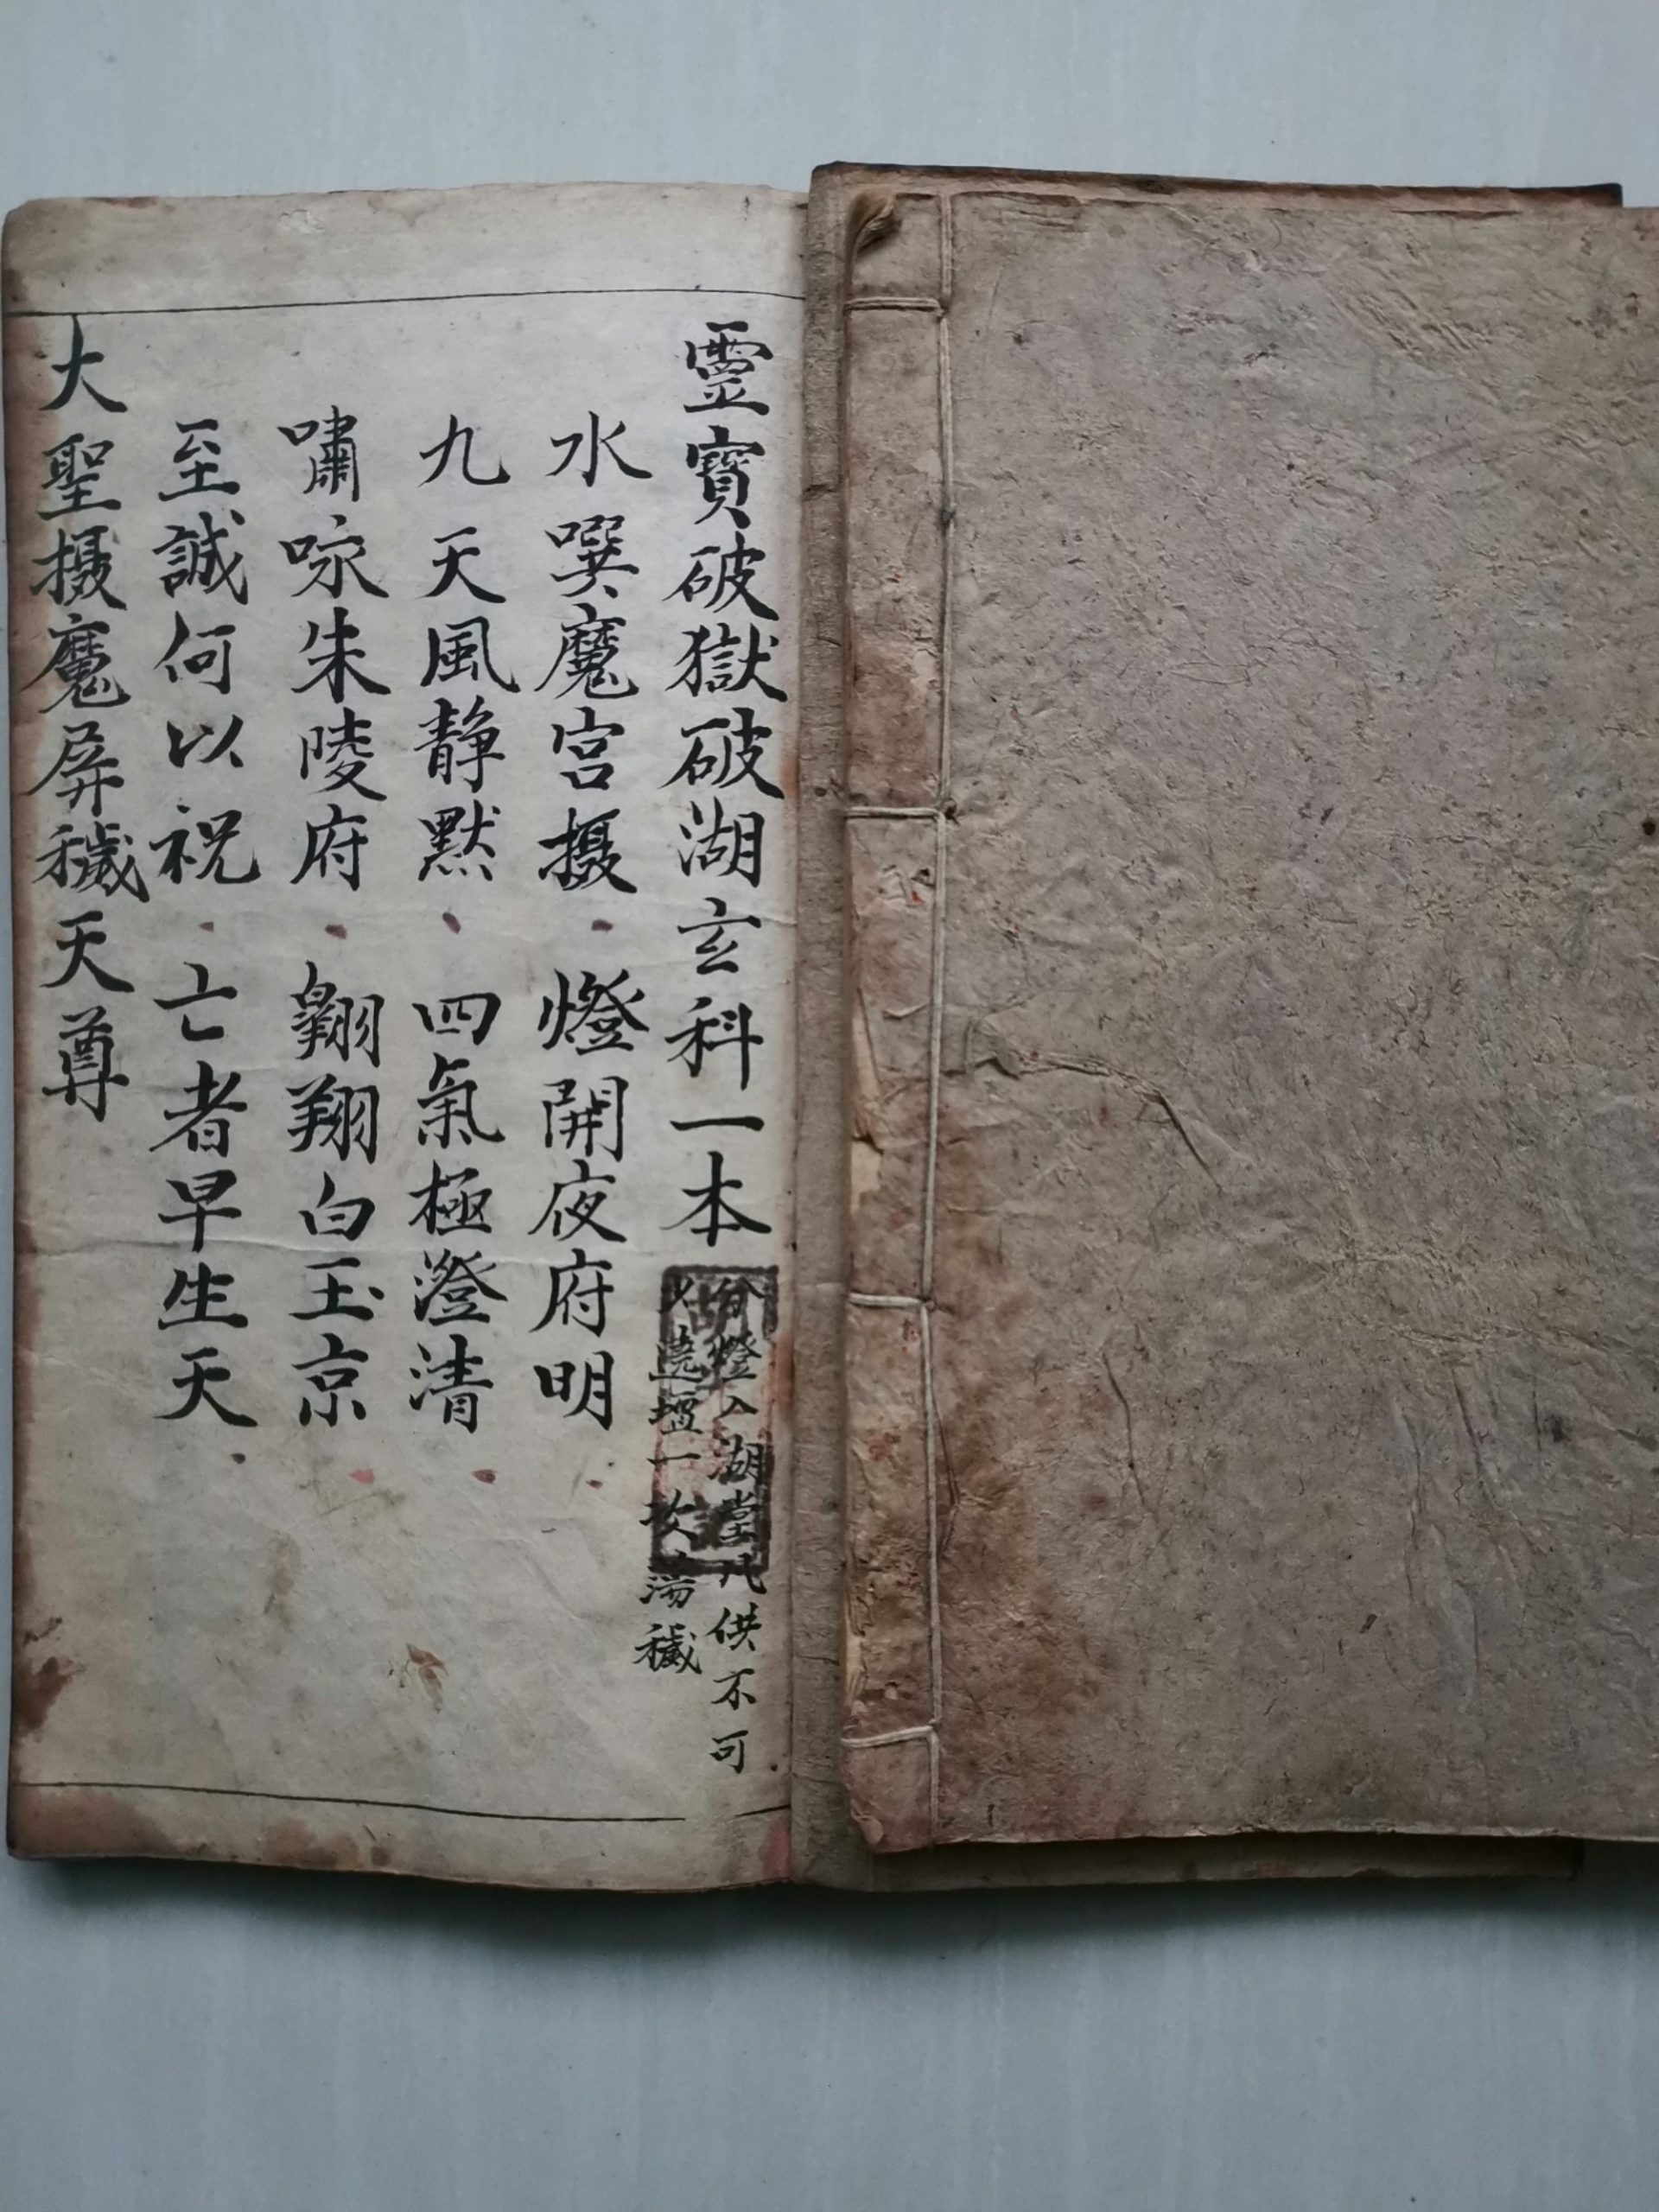 霊寳破獄破湖玄科一本
分燈入湖堂凡供不可
遶壇一次蕩穢
水噀魔宫摄 燈開夜府明
九天風静默 四氣極澄清
嘯咏朱陵府 翺翔白玉京
至誠何以祝 亡者早生天
大聖摄魔屏穢天尊